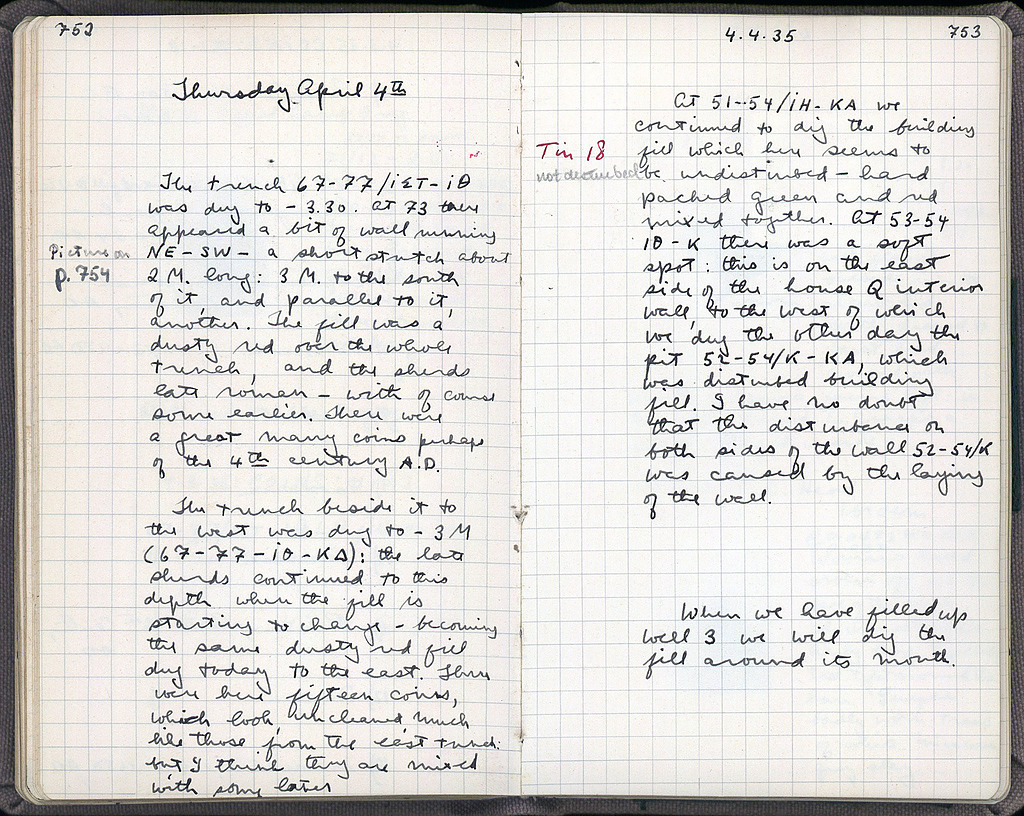 752
Thursday April 4th
The trench 67-77/ΙΣΤ-ΙΘ
was dug to -3.30. At 73 there
appeared a bit of wall running
NE-SW- a short stretch about
2 M. long: 3 M. to the south
of it, and parallel to it,
another. The fill was a
dusty red over the whole
trench, and the sherds
late roman - with of course
some earlier. There were
a great many coins perhaps
of the 4th century A.D.
Picture on
p. 754
The trench beside it to
the west was dug to -3M
(67-77-ΙΘ-ΚΔ): the late
sherds continued to this
depth where the fill is
starting to change - becoming
the same dusty red fill
dug today to the east. There
were here fifteen coins,
which look, uncleaned, much
like those from the east trench:
but I think they are mixed
with some later
4.4.35
753
At 51-54/ΙΗ-ΚΑ we
continued to dig the building
fill which here seems to
be undisturbed - hard
packed green and red
mixed together. At 53-54
ΙΘ-Κ there was a soft
spot: this is on the east
side of the house Q interior
wall, to the west of which
we dug the other day the
pit 52-54/Κ-ΚΑ, which
was disturbed building
fill. I have no doubt
that the disturbance on
both sides of the wall 52-54/Κ
was caused by the laying
of the wall.
Tin 18
not disturbed
When we have filled up
well 3 we will dig the
fill around its mouth.